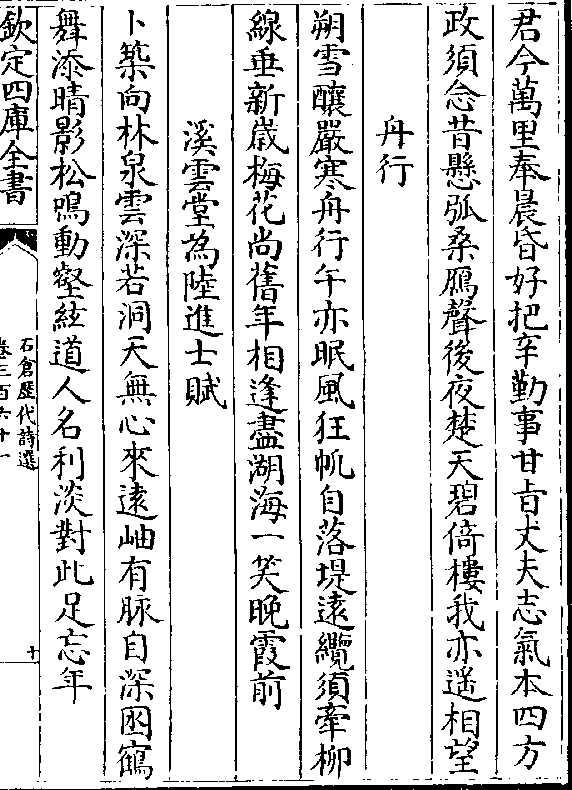 君今萬里奉晨昏好把辛勤事甘旨丈夫志氣本四方
政須念昔懸弧桑鴈聲後夜楚天碧倚樓我亦遥相望
舟行
朔雪釀嚴寒舟行午亦眠風狂帆自落堤遠纜須牽柳
線垂新歳梅花尚舊年相逢盡湖海一笑晚霞前
溪雲堂為陸進士賦
卜築向林泉雲深若洞天無心來遠岫有脉自深困鶴
舞添晴影松鳴動壑絃道人名利淡對此足忘年
欽定四庫全書
石倉歴代詩選
卷三百六十一
十